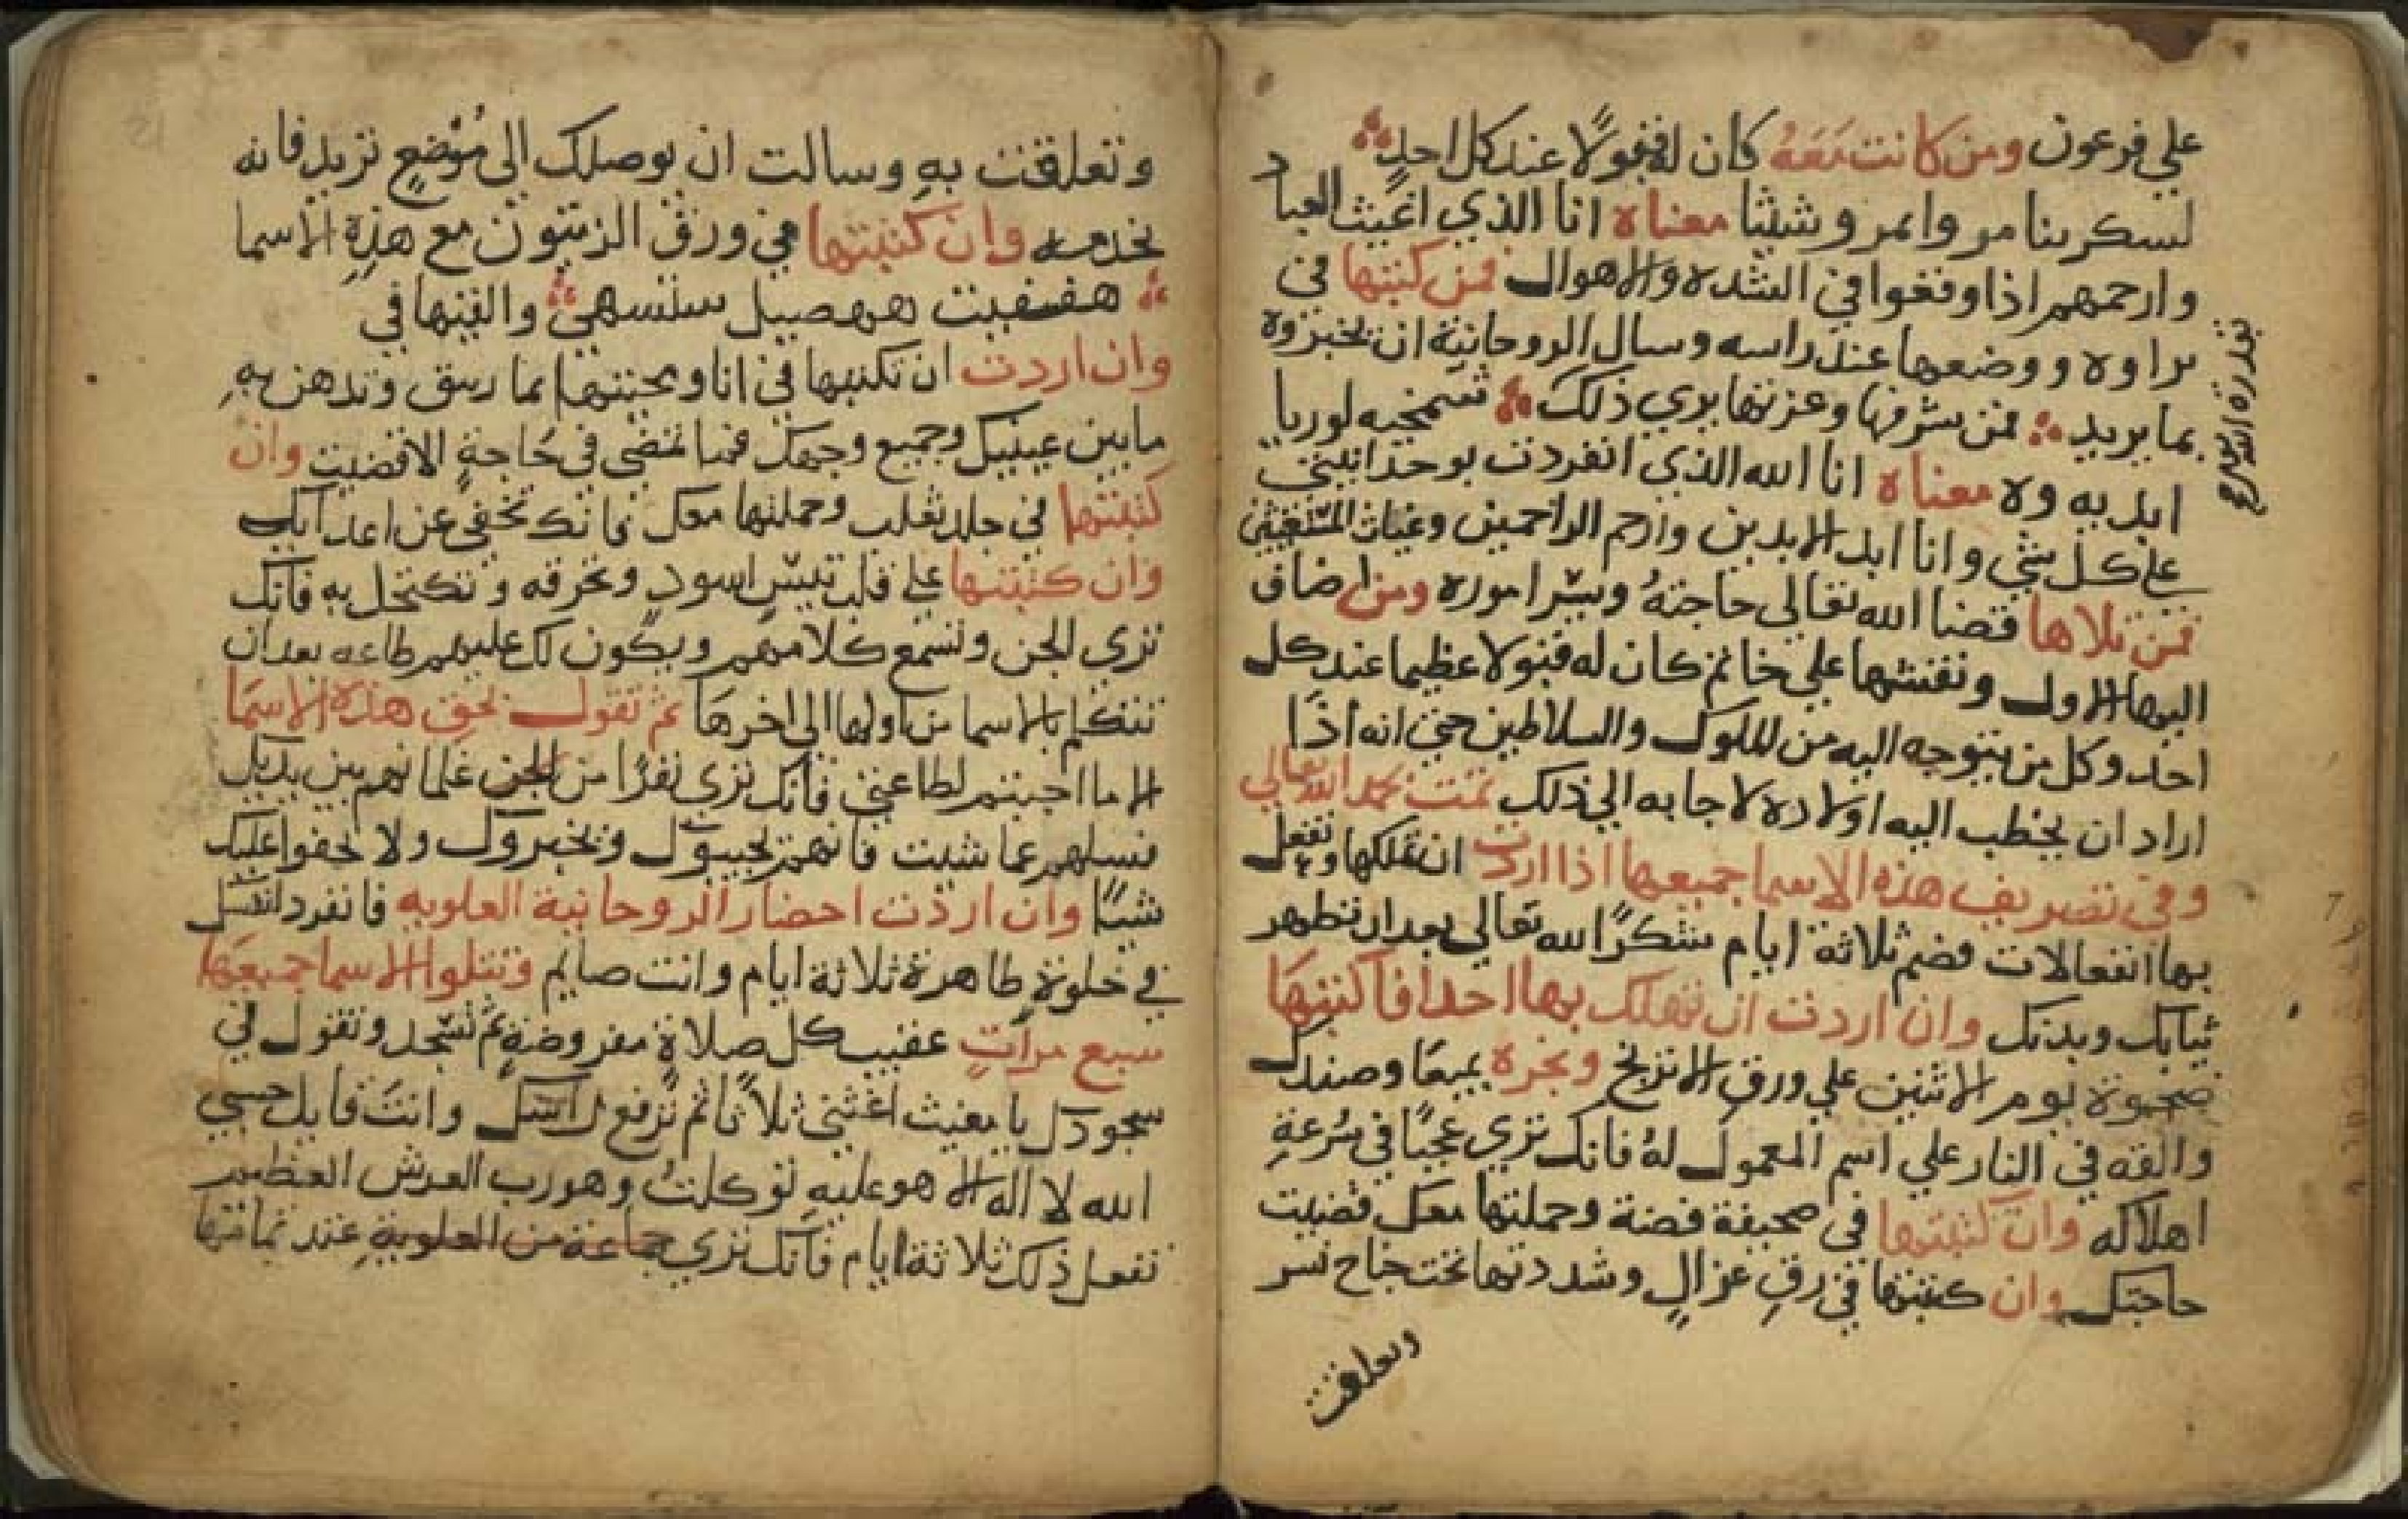 علي فرعون ومن كانت معه كان له قبولا عند كل احد
لسكرينا مر وايمر وشيثا معناه انا الذي اغيث العباد
وارحمهم اذا وقعوا في الشده والاهوال فمن كتبها في
براوه ووضعها عند راسه وسال الروحانية ان يخبروه
بما يريد فمن شرفها وعزتها يري ذلك شمخيه لوريا
ابد به وه معناه انا الله الذي انفردت بوحدانيتي
بقدرة الله
علي كل شي وانا ابد الابدين وارحم الراحمين وغياث المستغيثين
فمن تلاها قضا الله تعالي حاجته ويسر اموره ومن اضاف
اليها الاول ونقشها علي خاتم كان له قبولا عظيما عند كل
احد وكل من يتوجه اليه من الملوك والسلاطين حتي انه اذا
اراد ان يخطب اليه اولاده لاجابه الي ذلك تمت بحمد الله تعالي
وفي تصريف هذه الاسما جميعها اذا اردت ان تملكها وتفعل
بها انفعالات فصم ثلاثة ايام شكرا لله تعالي بعد ان تطهر
ثيابك وبدنك وان اردت ان تهلك بها احدا فاكتبها
ضحوة يوم الاثنين علي ورق الاترنج وبخره بميعا وصندل
والقه في النار علي اسم المعمول له فانك تري عجبا في سرعة
اهلاكه وان كتبتها في صحيفة فضة وحملتها معك قضيت
حاجتك وان كتبتها في رق غزال وشددتها تحت جناح نسر
وتعلقت
وتعلقت به وسالت ان يوصلك الي موضع تريد فانه
يخدمك وان كتبتها في ورق الزيتون مع هذه الاسما
هفسفيت ههصييل سلسهي والقيتها في
وان اردت ان تكتبها في انا ومحيتها بما ريق وتدهن به
مابين عينيك وجميع وجهك فما تمضي في حاجة الا قضيت وان
كتبتها في جلد ثعلب وحملتها معك فانك تخفي عن اعدايك
وان كتبتها علي قلب تيس اسود وتحرقه وتكتحل به فانك
تري الجن وتسمع كلامهم ويكون لك عليهم طاعه بعد ان
تتكلم بالاسما من اولها الي اخرها ثم تقول بحق هذه الاسما
الا ما اجبتم لطاعتي فانك تري نفرا من الجن غلمانهم بين يديك
فسلهم عما شيت فانهم يجيبوك ويخبروك ولا يخفوا عليك
شيا وان اردت احضار الروحانية العلويه فانفرد بنفسك
في خلوة طاهرة ثلاثة ايام وانت صايم وتتلوا الاسما جميعها
سبع مرات عقيب كل صلاة مفروضة ثم تسجد وتقول في
سجودك يا مغيث اغثني ثلاثا ثم ترفع راسك وانت قايل حسبي
الله لا اله الا هو عليه توكلت وهو رب العرش العظيم
تفعل ذلك ثلاثة ايام فانك تري جماعة من العلوية عند تمامها